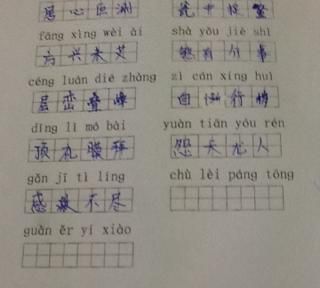 居心叵测 瓮中捉鳖
fāng xīng wèi ài shà yǒu jiè shì
方兴未艾 有介事
céng luán dié zhàng zì cán xíng huì
层峦叠 自惭行
dǐng lǐ mó bài yuàn tiān yóu rén
顶礼膜拜 怨天尤人
gǎn jī tì líng chù lèi páng tōng
感激不尽
guǎn ěr yí xiào